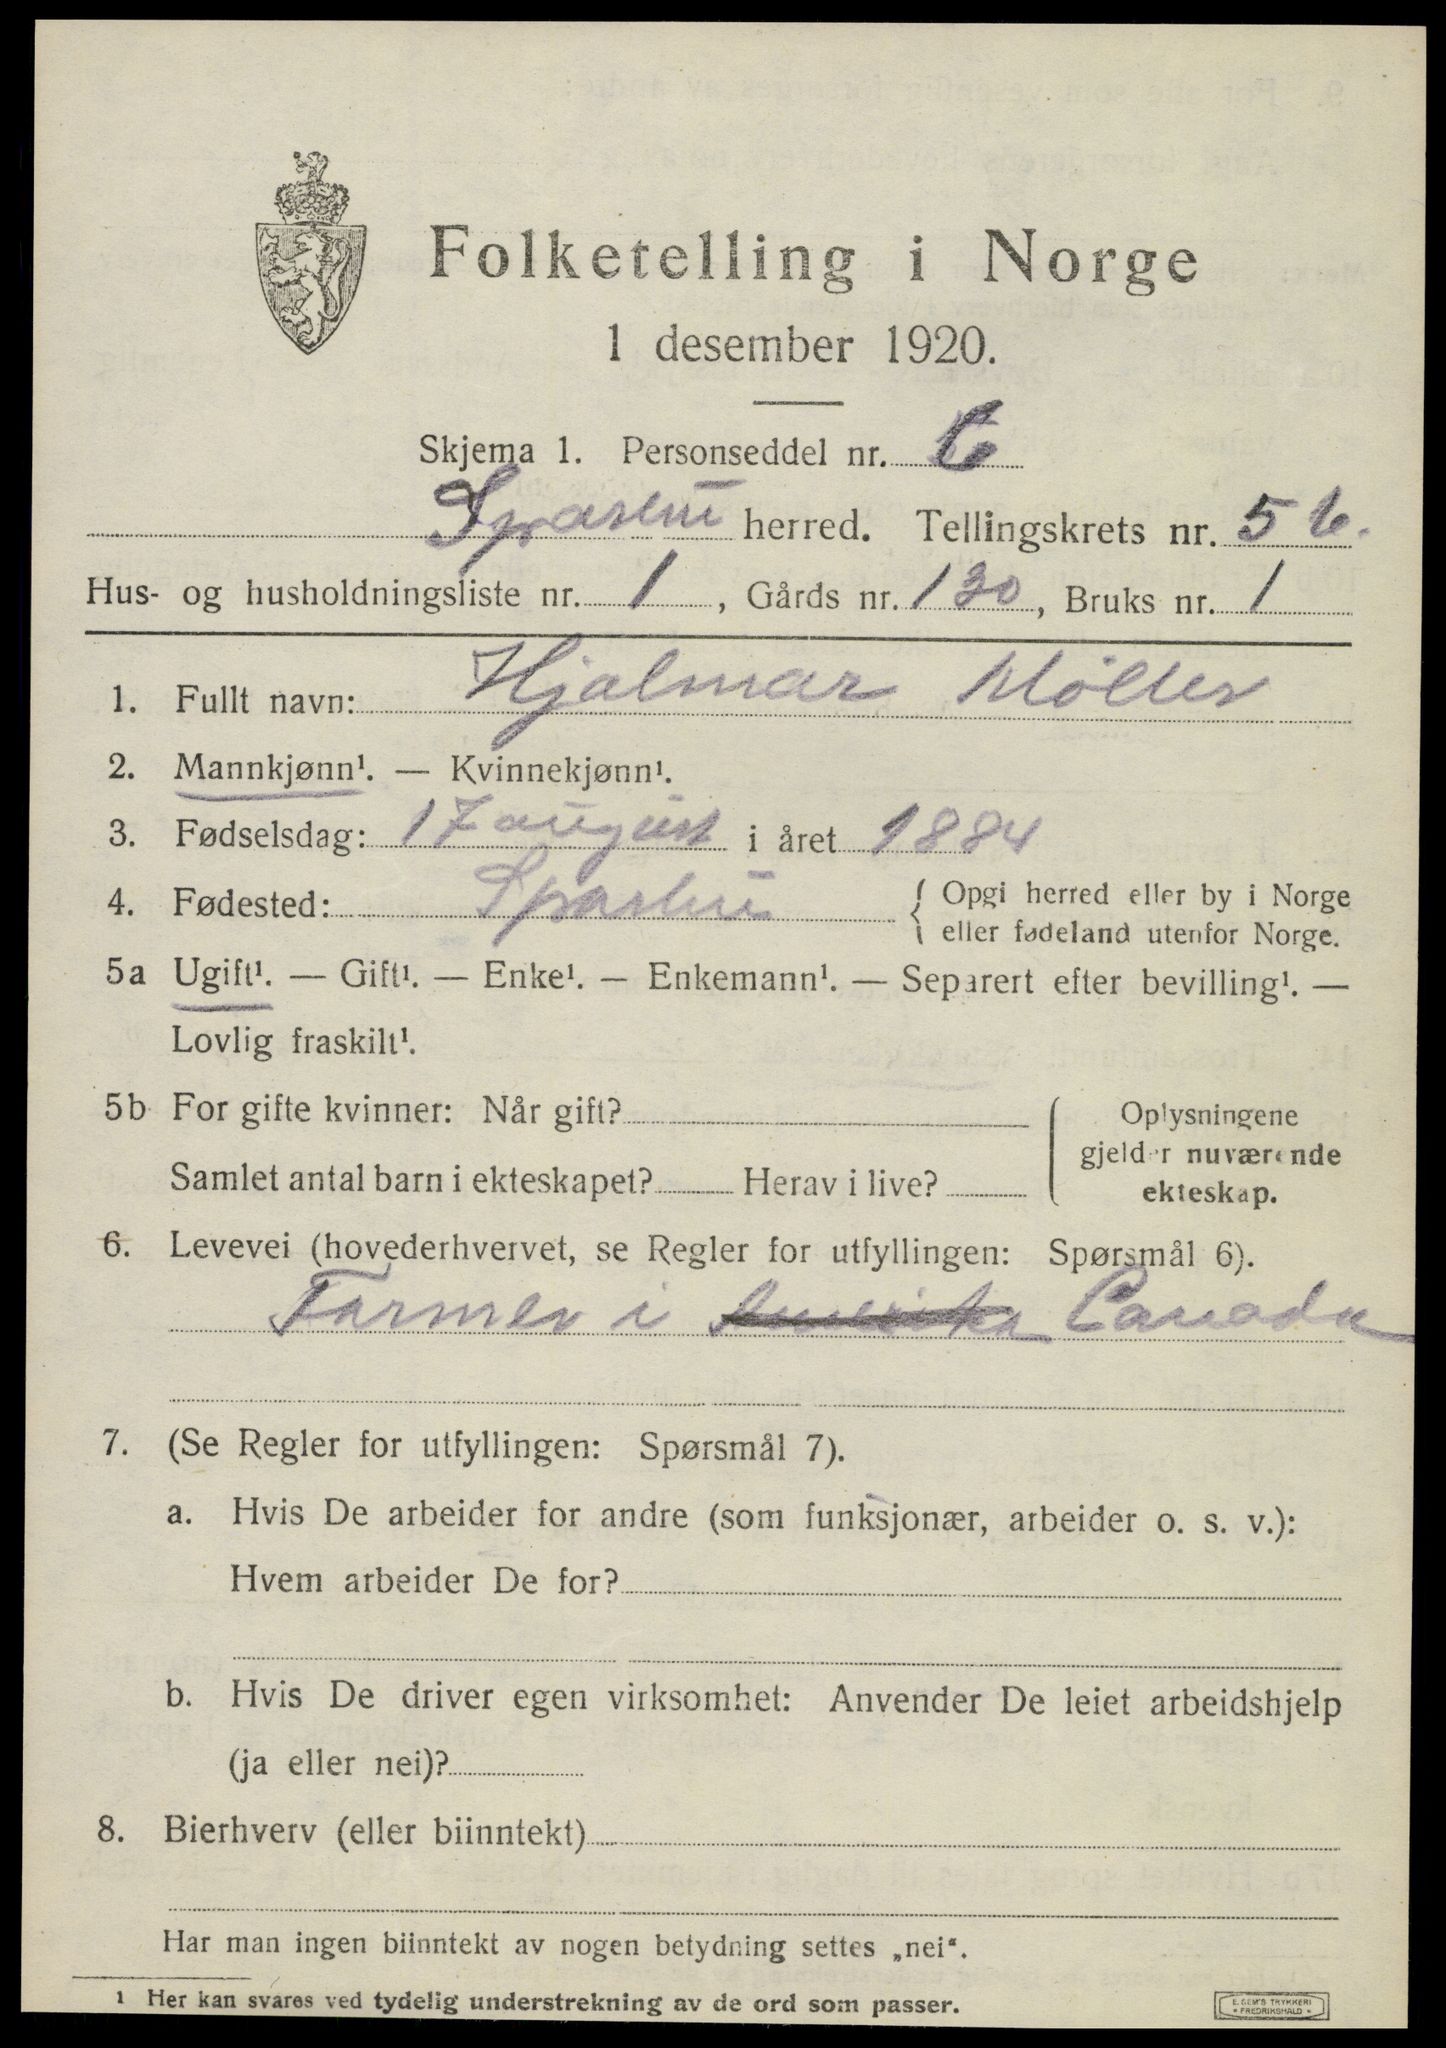 Folketelling i Norge
1 desember 1920.
Skjema 1. Personseddel nr. 6
Sparbu herred. Tellingskrets nr. 5 b.
Hus- og husholdningsliste nr. 1, Gårds nr. 130, Bruks nr. 1
1. Fullt navn: Hjalmar Möller
2. Mannkjønn¹. — Kvinnekjønn¹.
3. Fødselsdag: 17 august i året 1884
4. Fødested: Sparbu { Opgi herred eller by i Norge
eller fødeland utenfor Norge.
5a Ugift¹. — Gift¹. — Enke¹. — Enkemann¹. — Separert efter bevilling¹. —
Lovlig fraskilt¹.
5b For gifte kvinner: Når gift?
Samlet antal barn i ekteskapet? Herav i live?
Oplysningene
gjelder nuværende
ekteskap.
6. Levevei (hovederhvervet, se Regler for utfyllingen: Spørsmål 6).
Farmer i Amerika Canada
7. (Se Regler for utfyllingen: Spørsmål 7).
a. Hvis De arbeider for andre (som funksjonær, arbeider o. s. v.):
Hvem arbeider De for?
b. Hvis De driver egen virksomhet: Anvender De leiet arbeidshjelp
(ja eller nei)?
8. Bierhverv (eller biinntekt)
Har man ingen biinntekt av nogen betydning settes „nei“.
1 Her kan svares ved tydelig understrekning av de ord som passer.
E. SEM'S TRYKKERI
• FREDRIKSHALD •